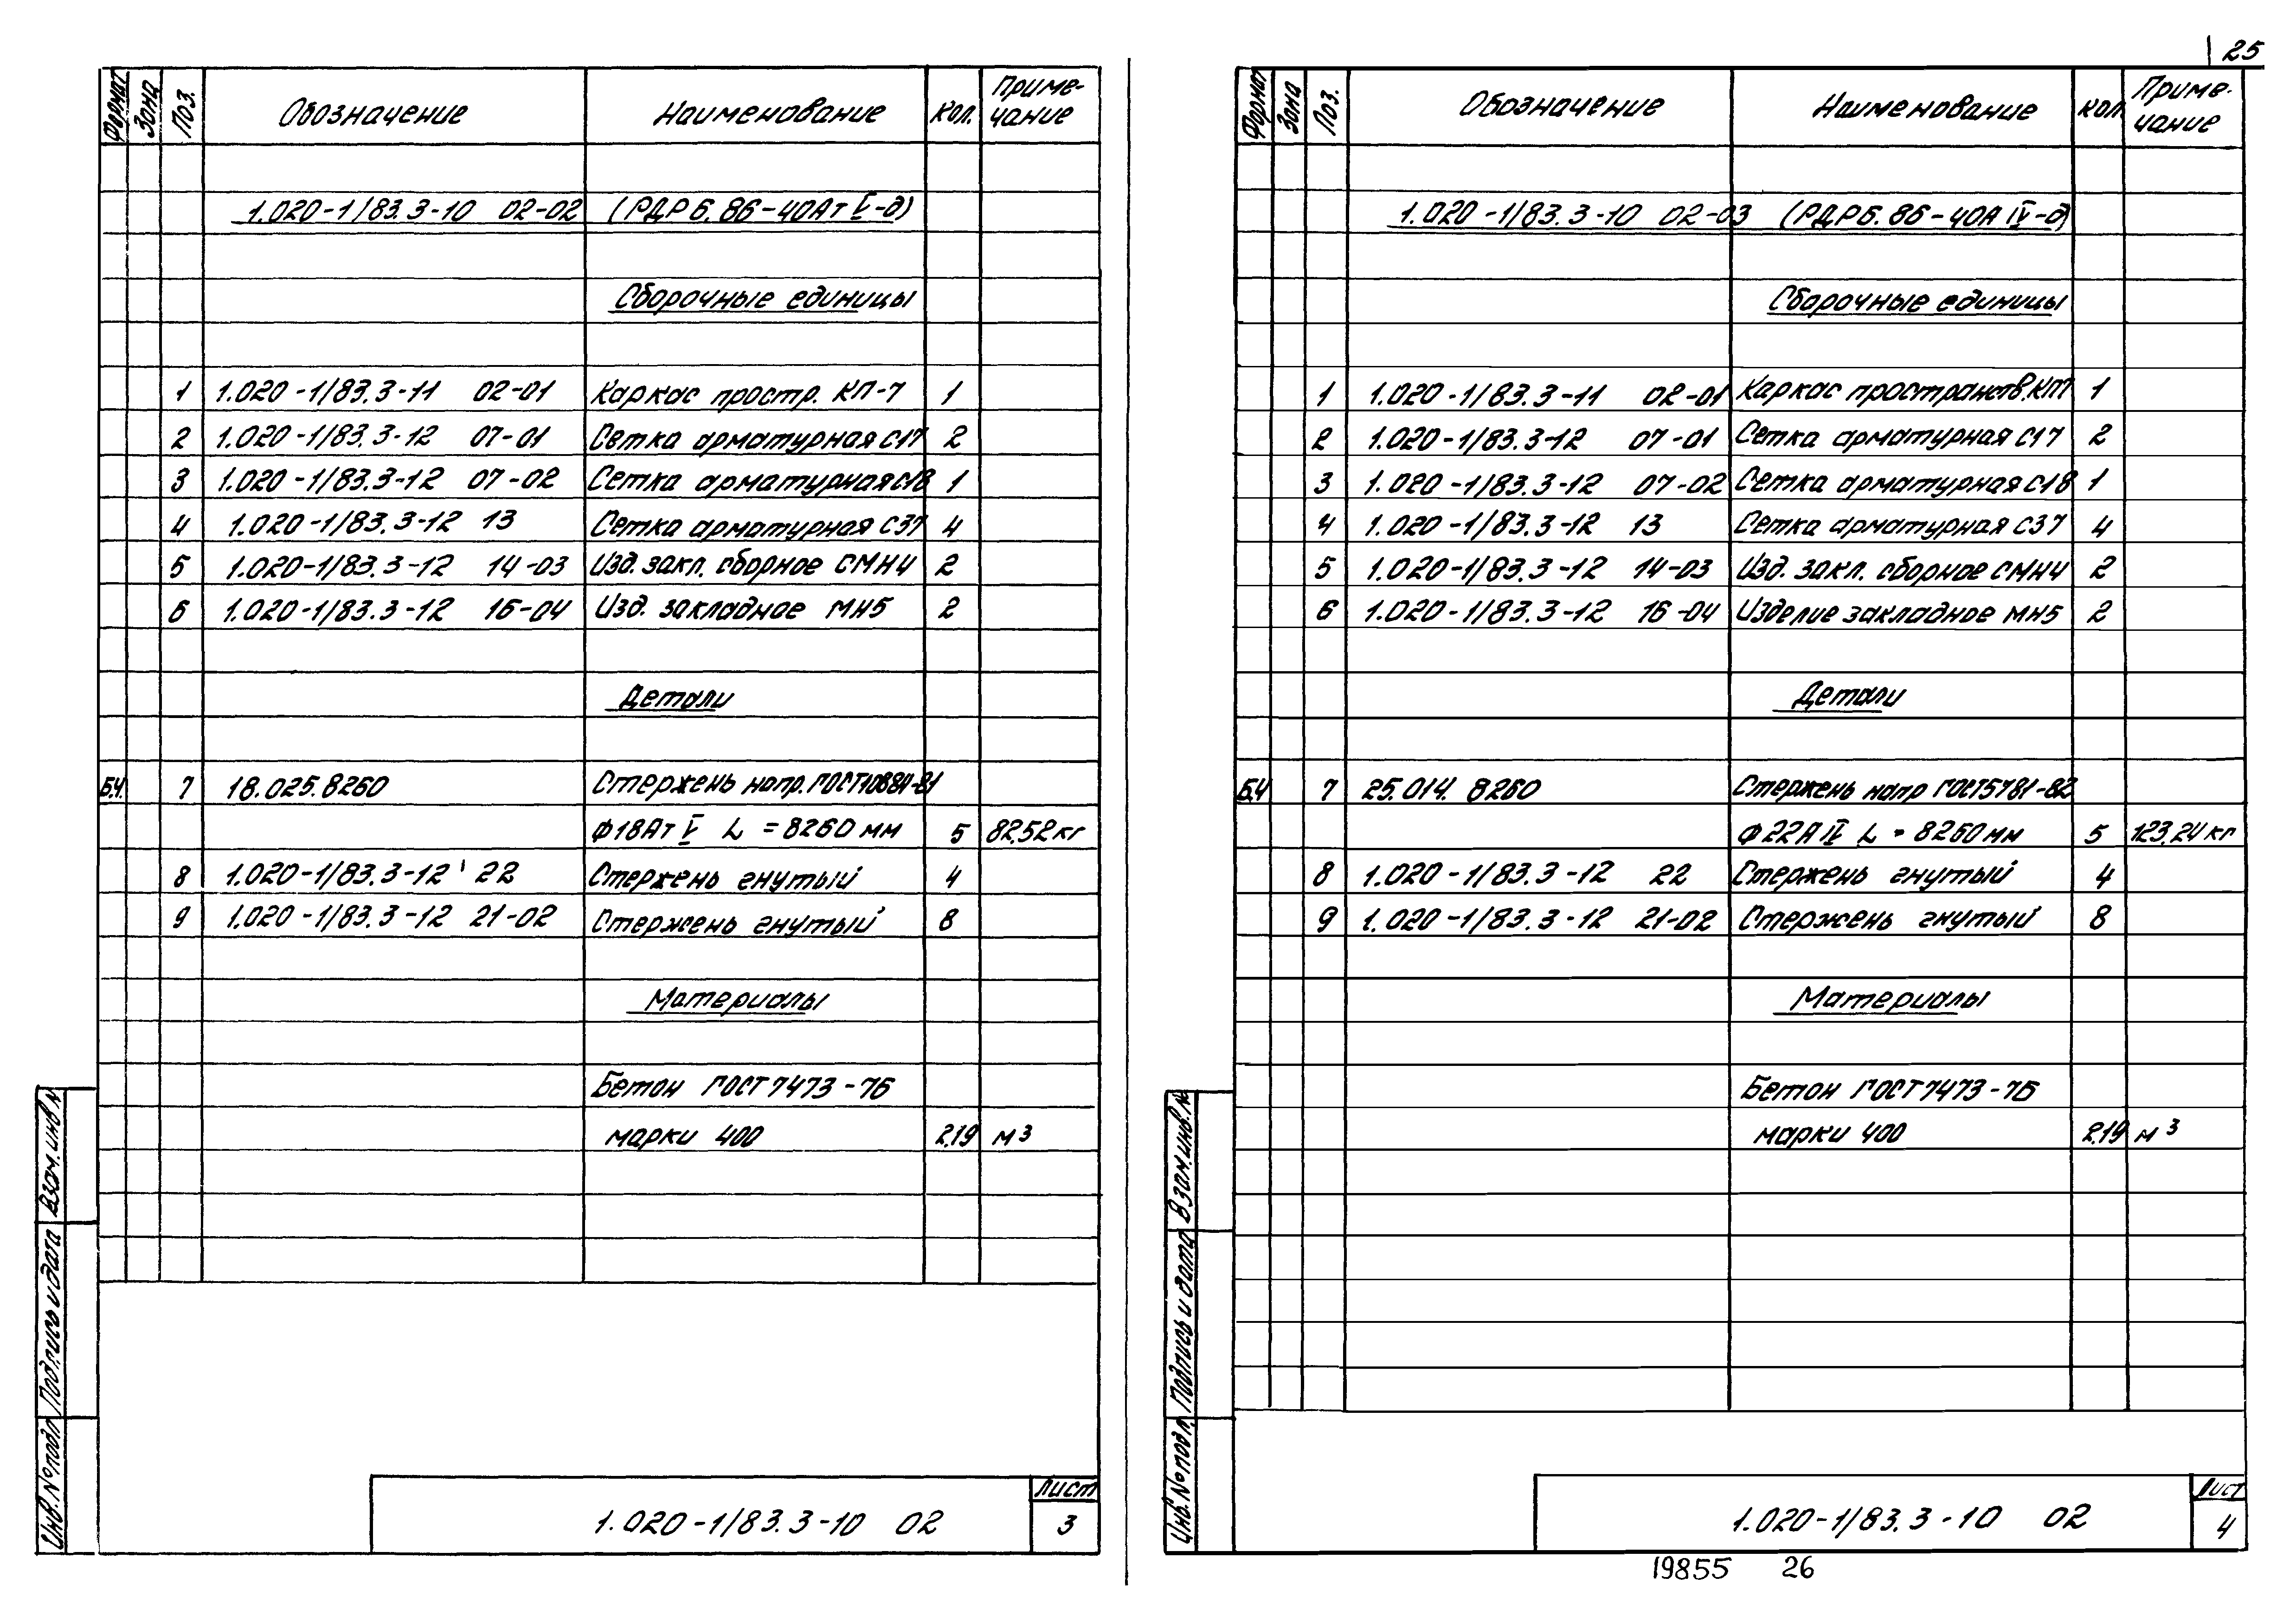 25
Формат Зона Поз. Обозначение Наименование Кол. Приме-
чание
1.020-1/83.3-10 02-02 (РДР6.86-40АтV-д)
Сборочные единицы
1 1.020-1/83.3-11 02-01 Каркас простр. КП-7 1
2 1.020-1/83.3-12 07-01 Сетка арматурная С17 2
3 1.020-1/83.3-12 07-02 Сетка арматурная С18 1
4 1.020-1/83.3-12 13 Сетка арматурная С37 4
5 1.020-1/83.3-12 14-03 Изд. закл. сборное СМН4 2
6 1.020-1/83.3-12 16-04 Изд. закладное МН5 2
Детали
Б.Ч. 7 18.025.8260 Стержень напр. ГОСТ10884-81
Ф18АтV L = 8260 мм 5 82,52 кг
8 1.020-1/83.3-12 22 Стержень гнутый 4
9 1.020-1/83.3-12 21-02 Стержень гнутый 8
Материалы
Бетон ГОСТ 7473-76
марки 400 2,19 м³
Взам. инв. №
Подпись и дата
Инв. № подл
1.020-1/83.3-10 02
Лист
3
Формат Зона Поз. Обозначение Наименование Кол Приме-
чание
1.020-1/83.3-10 02-03 (РДР6.86-40АIV-д)
Сборочные единицы
1 1.020-1/83.3-11 02-01 Каркас пространств. КП7 1
2 1.020-1/83.3-12 07-01 Сетка арматурная С17 2
3 1.020-1/83.3-12 07-02 Сетка арматурная С18 1
4 1.020-1/83.3-12 13 Сетка арматурная С37 4
5 1.020-1/83.3-12 14-03 Изд. закл. сборное СМН4 2
6 1.020-1/83.3-12 16-04 Изделие закладное МН5 2
Детали
Б.Ч 7 25.014. 8260 Стержень напр ГОСТ5781-82
Ф22АIV L = 8260 мм 5 123,24 кг
8 1.020-1/83.3-12 22 Стержень гнутый 4
9 1.020-1/83.3-12 21-02 Стержень гнутый 8
Материалы
Бетон ГОСТ 7473-76
марки 400 2,19 м³
Взам. инв. №
Подпись и дата
Инв. № подл.
1.020-1/83.3-10 02
Лист
4
19855 26